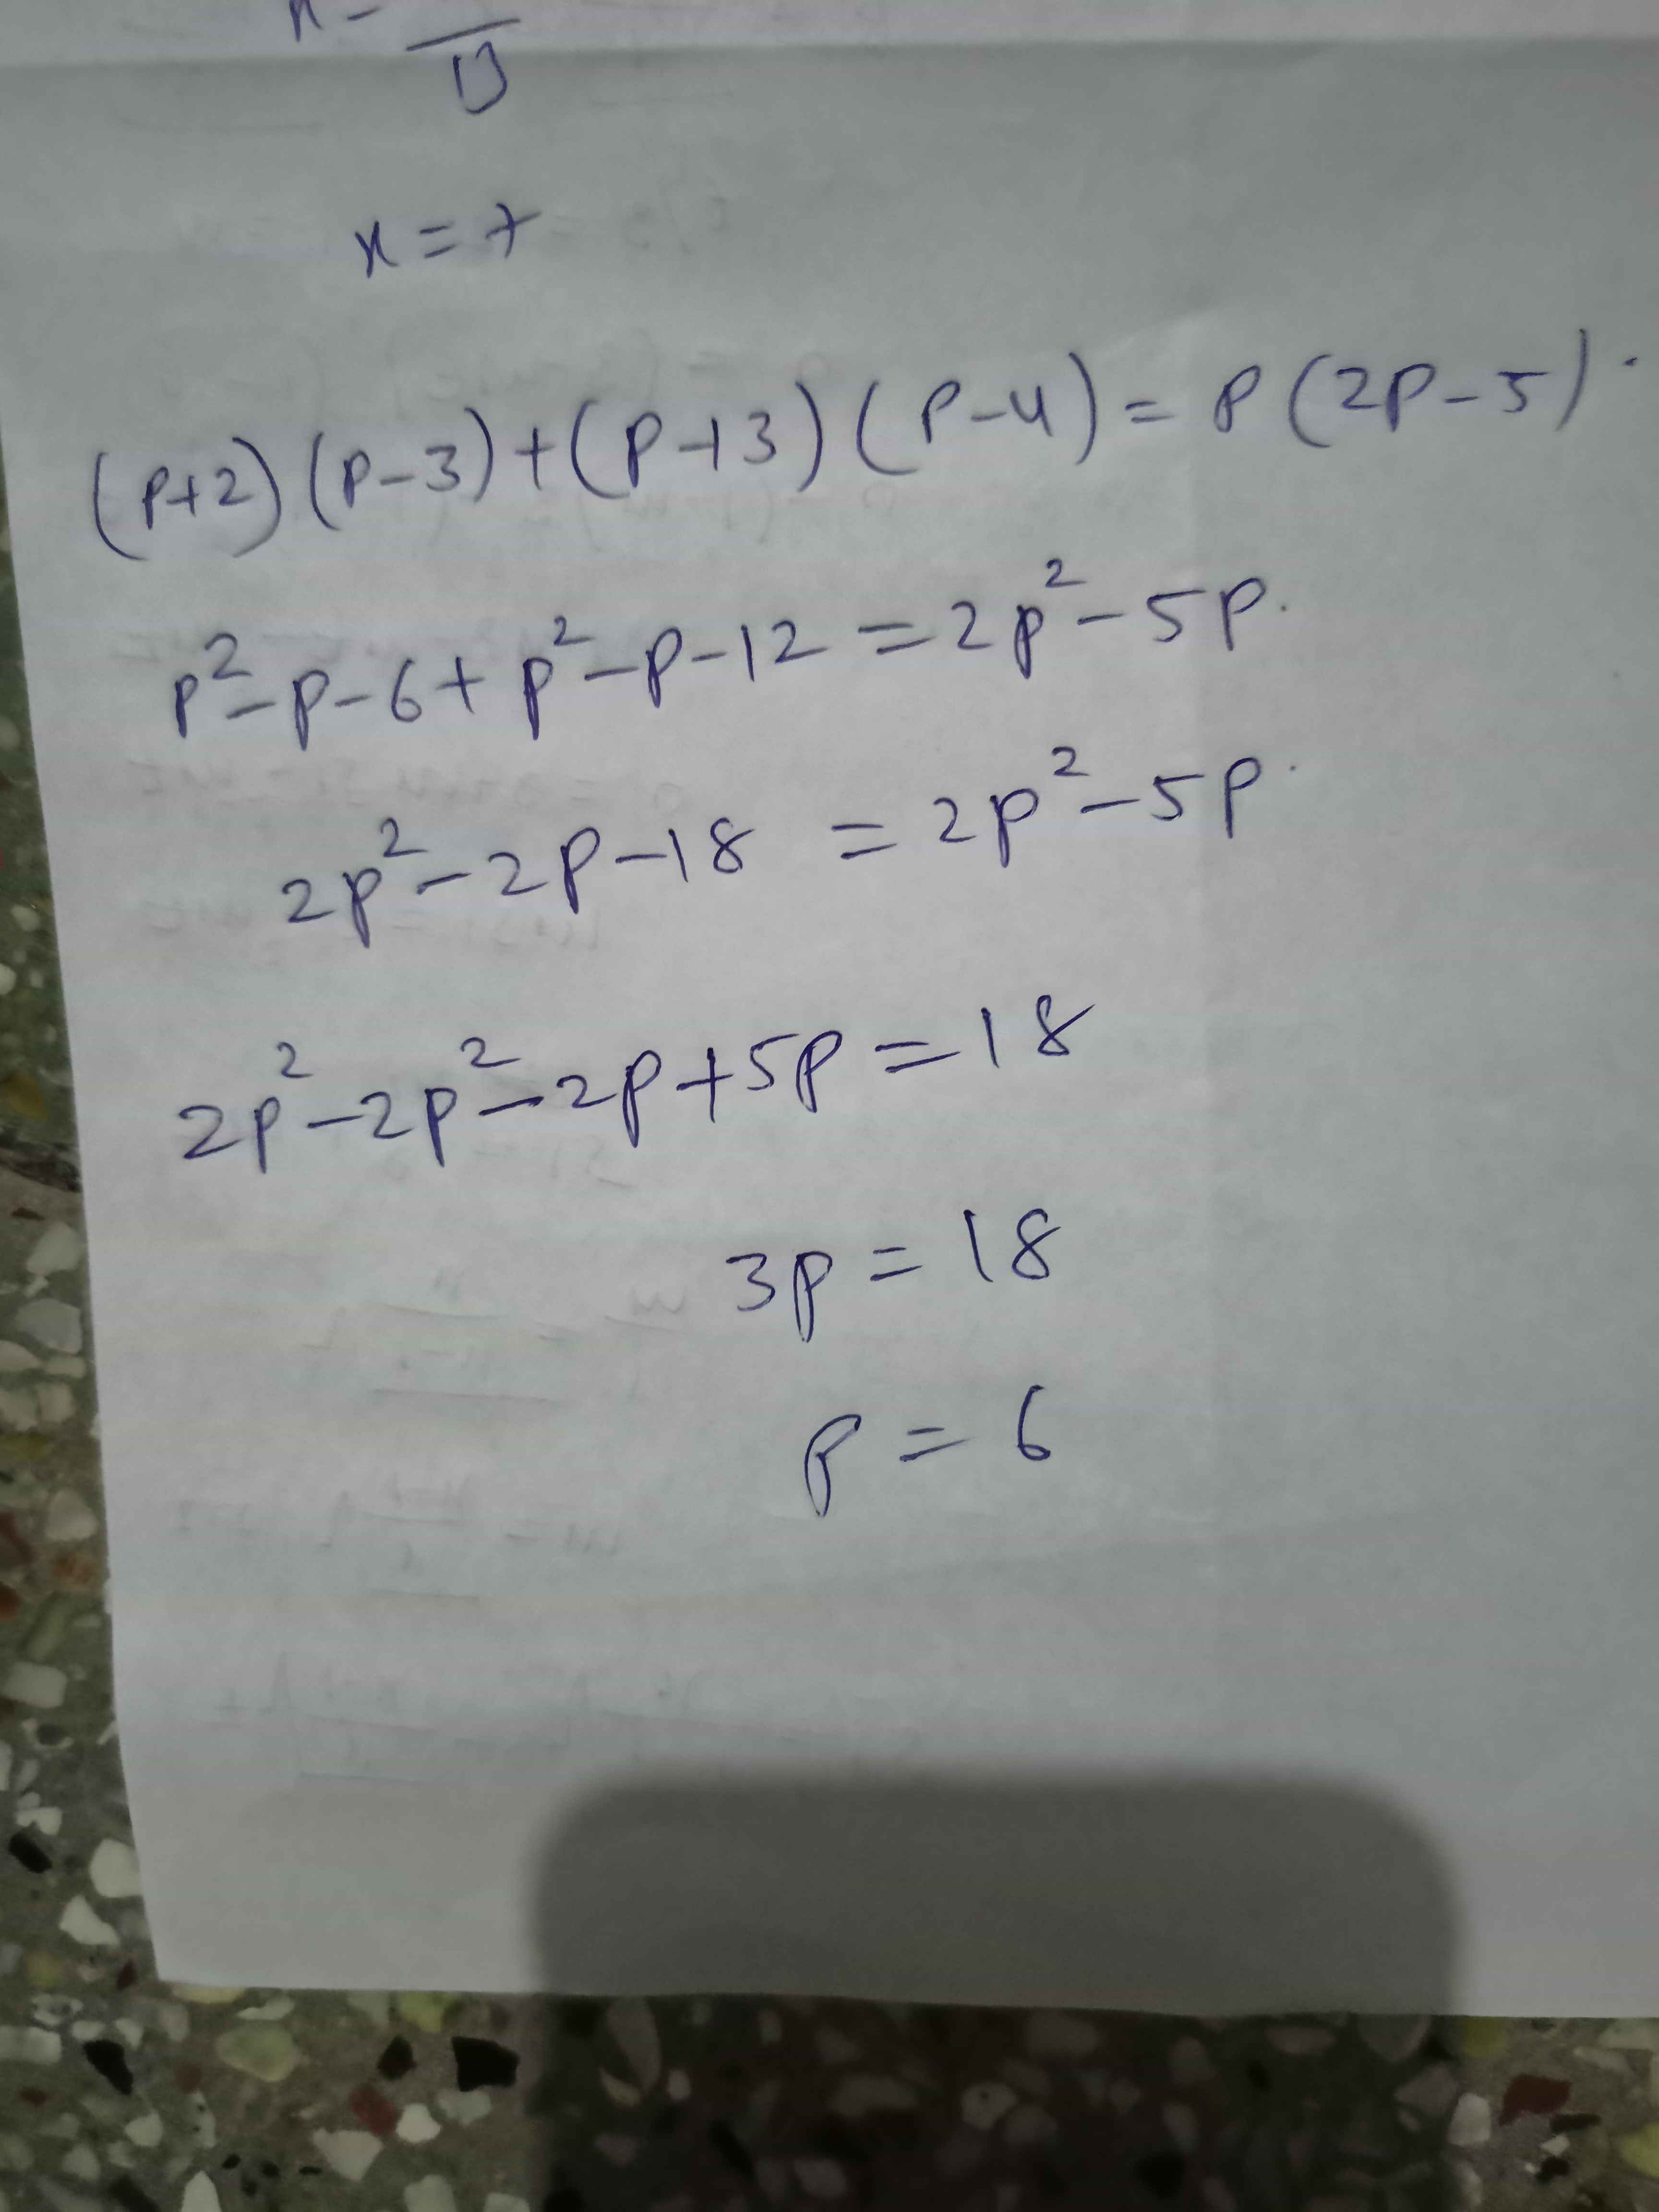 13
x = 7
(p+2)(p-3)+(p+3)(p-4) = p(2p-5).
p²-p-6+p²-p-12 = 2p²-5p.
2p²-2p-18 = 2p²-5p.
2p²-2p²-2p+5p = 18
3p = 18
p = 6